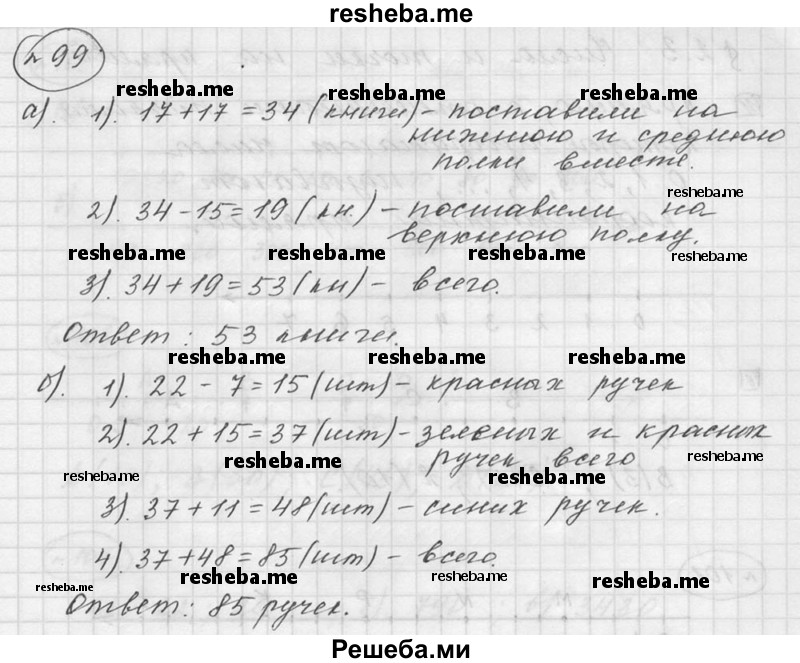 resheba.me
н 99
resheba.me resheba.me resheba.me
а). 1). 17+17=34 (книги) - поставили на
нижнюю и среднюю
полки вместе.
resheba.me
2). 34-15=19 (кн.) - поставили на
верхнюю полку.
resheba.me resheba.me resheba.me resheba.me
3). 34+19=53 (кн) - всего.
Ответ: 53 книги.
resheba.me resheba.me resheba.me
б). 1). 22 - 7=15 (шт) - красных ручек
2). 22+15=37 (шт) - зеленых и красных
ручек всего
resheba.me resheba.me
resheba.me resheba.me
3). 37+11=48 (шт) - синих ручек.
4). 37+48=85 (шт) - всего.
resheba.me resheba.me resheba.me resheba.me
Ответ: 85 ручек.
Решеба.ми